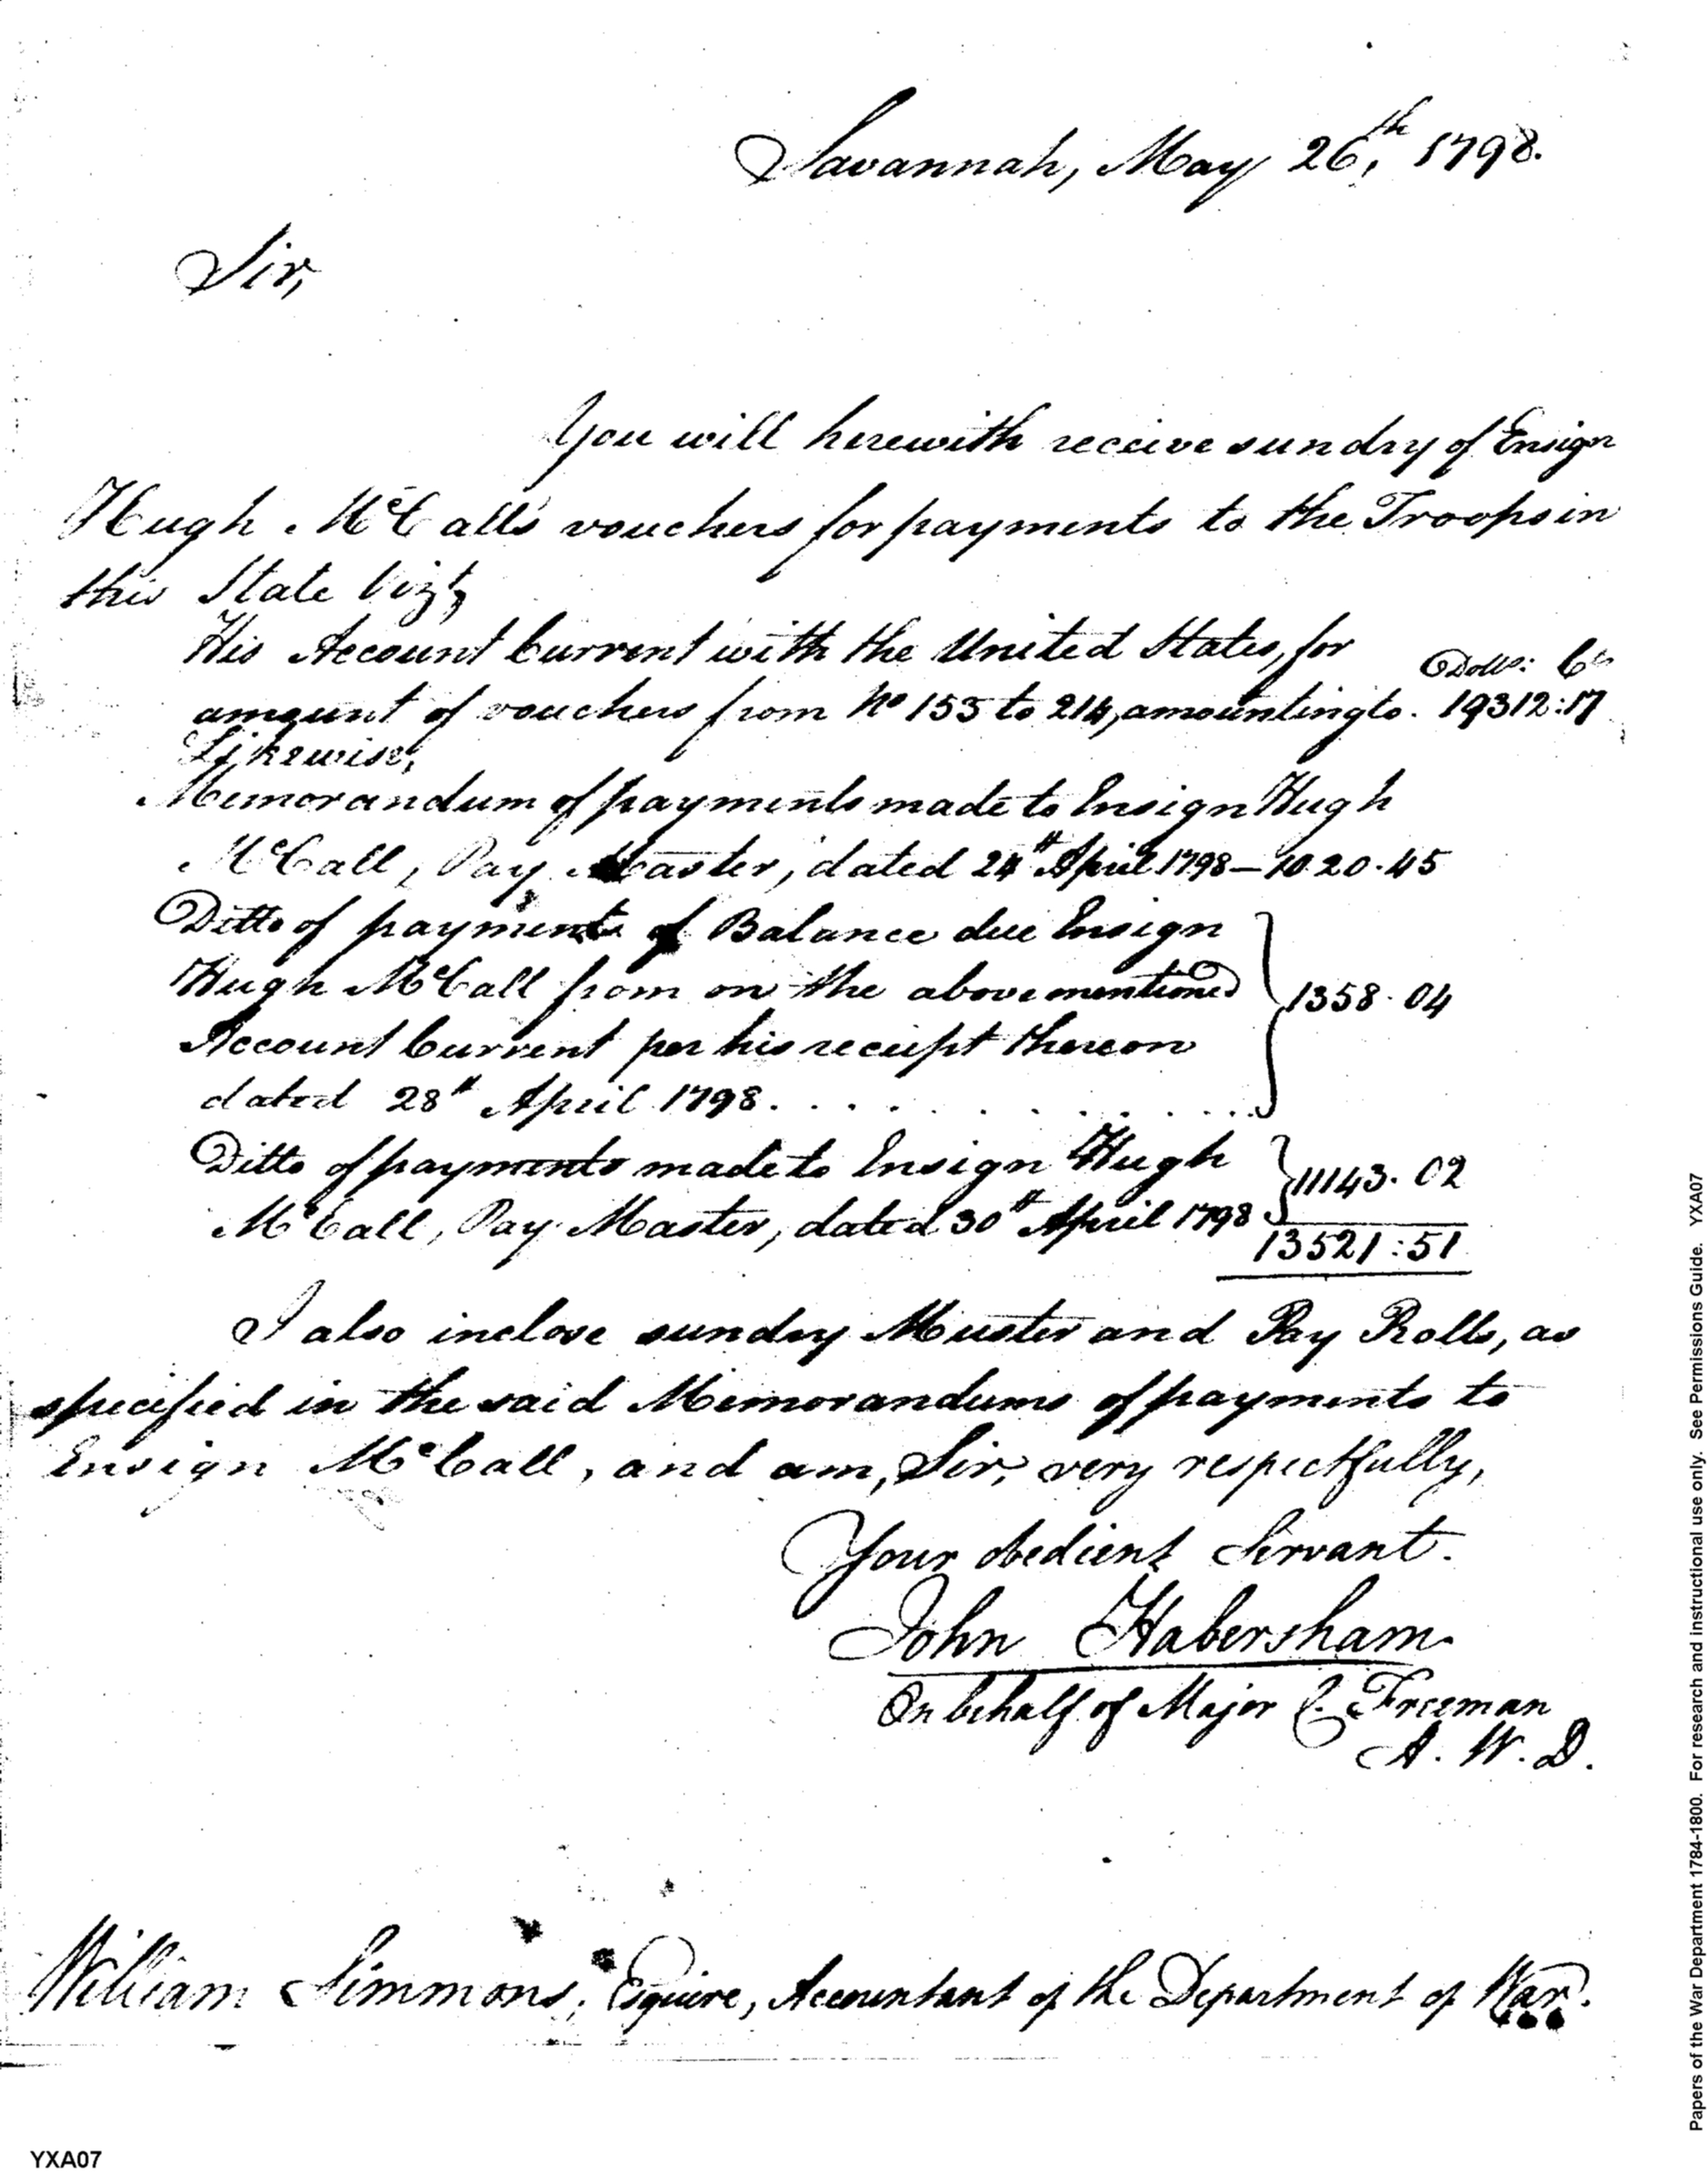 Savannah, May 26th, 1798.
Sir,
You will herewith receive sundry of Ensign
Hugh McCall's vouchers for payments to the Troops in
this State Vizt,
His Account Current with the United States, for
Dolls: Cts
amount of vouchers from No 155 to 214, amounting to. 19312:17
Likewise,
Memorandum of payments made to Ensign Hugh
McCall, Pay Master, dated 24th April 1798 — 1020.45
Ditto of payments of Balance due Ensign
Hugh McCall from on the above mentioned
1358.04
Account Current per his receipt thereon
dated 28th April 1798. . . . . . . . . . .
Ditto of payments made to Ensign Hugh
11143.02
McCall, Pay Master, dated 30th April 1798
13521:51
I also inclose sundry Muster and Pay Rolls, as
specified in the said Memorandums of payments to
Ensign McCall, and am, Sir, very respectfully,
Your obedient Servant.
John Habersham
On behalf of Major C. Freeman
A. W. D.
William Simmons, Esquire, Accountant of the Department of War.
YXA07
Papers of the War Department 1784-1800. For research and instructional use only. See Permissions Guide. YXA07